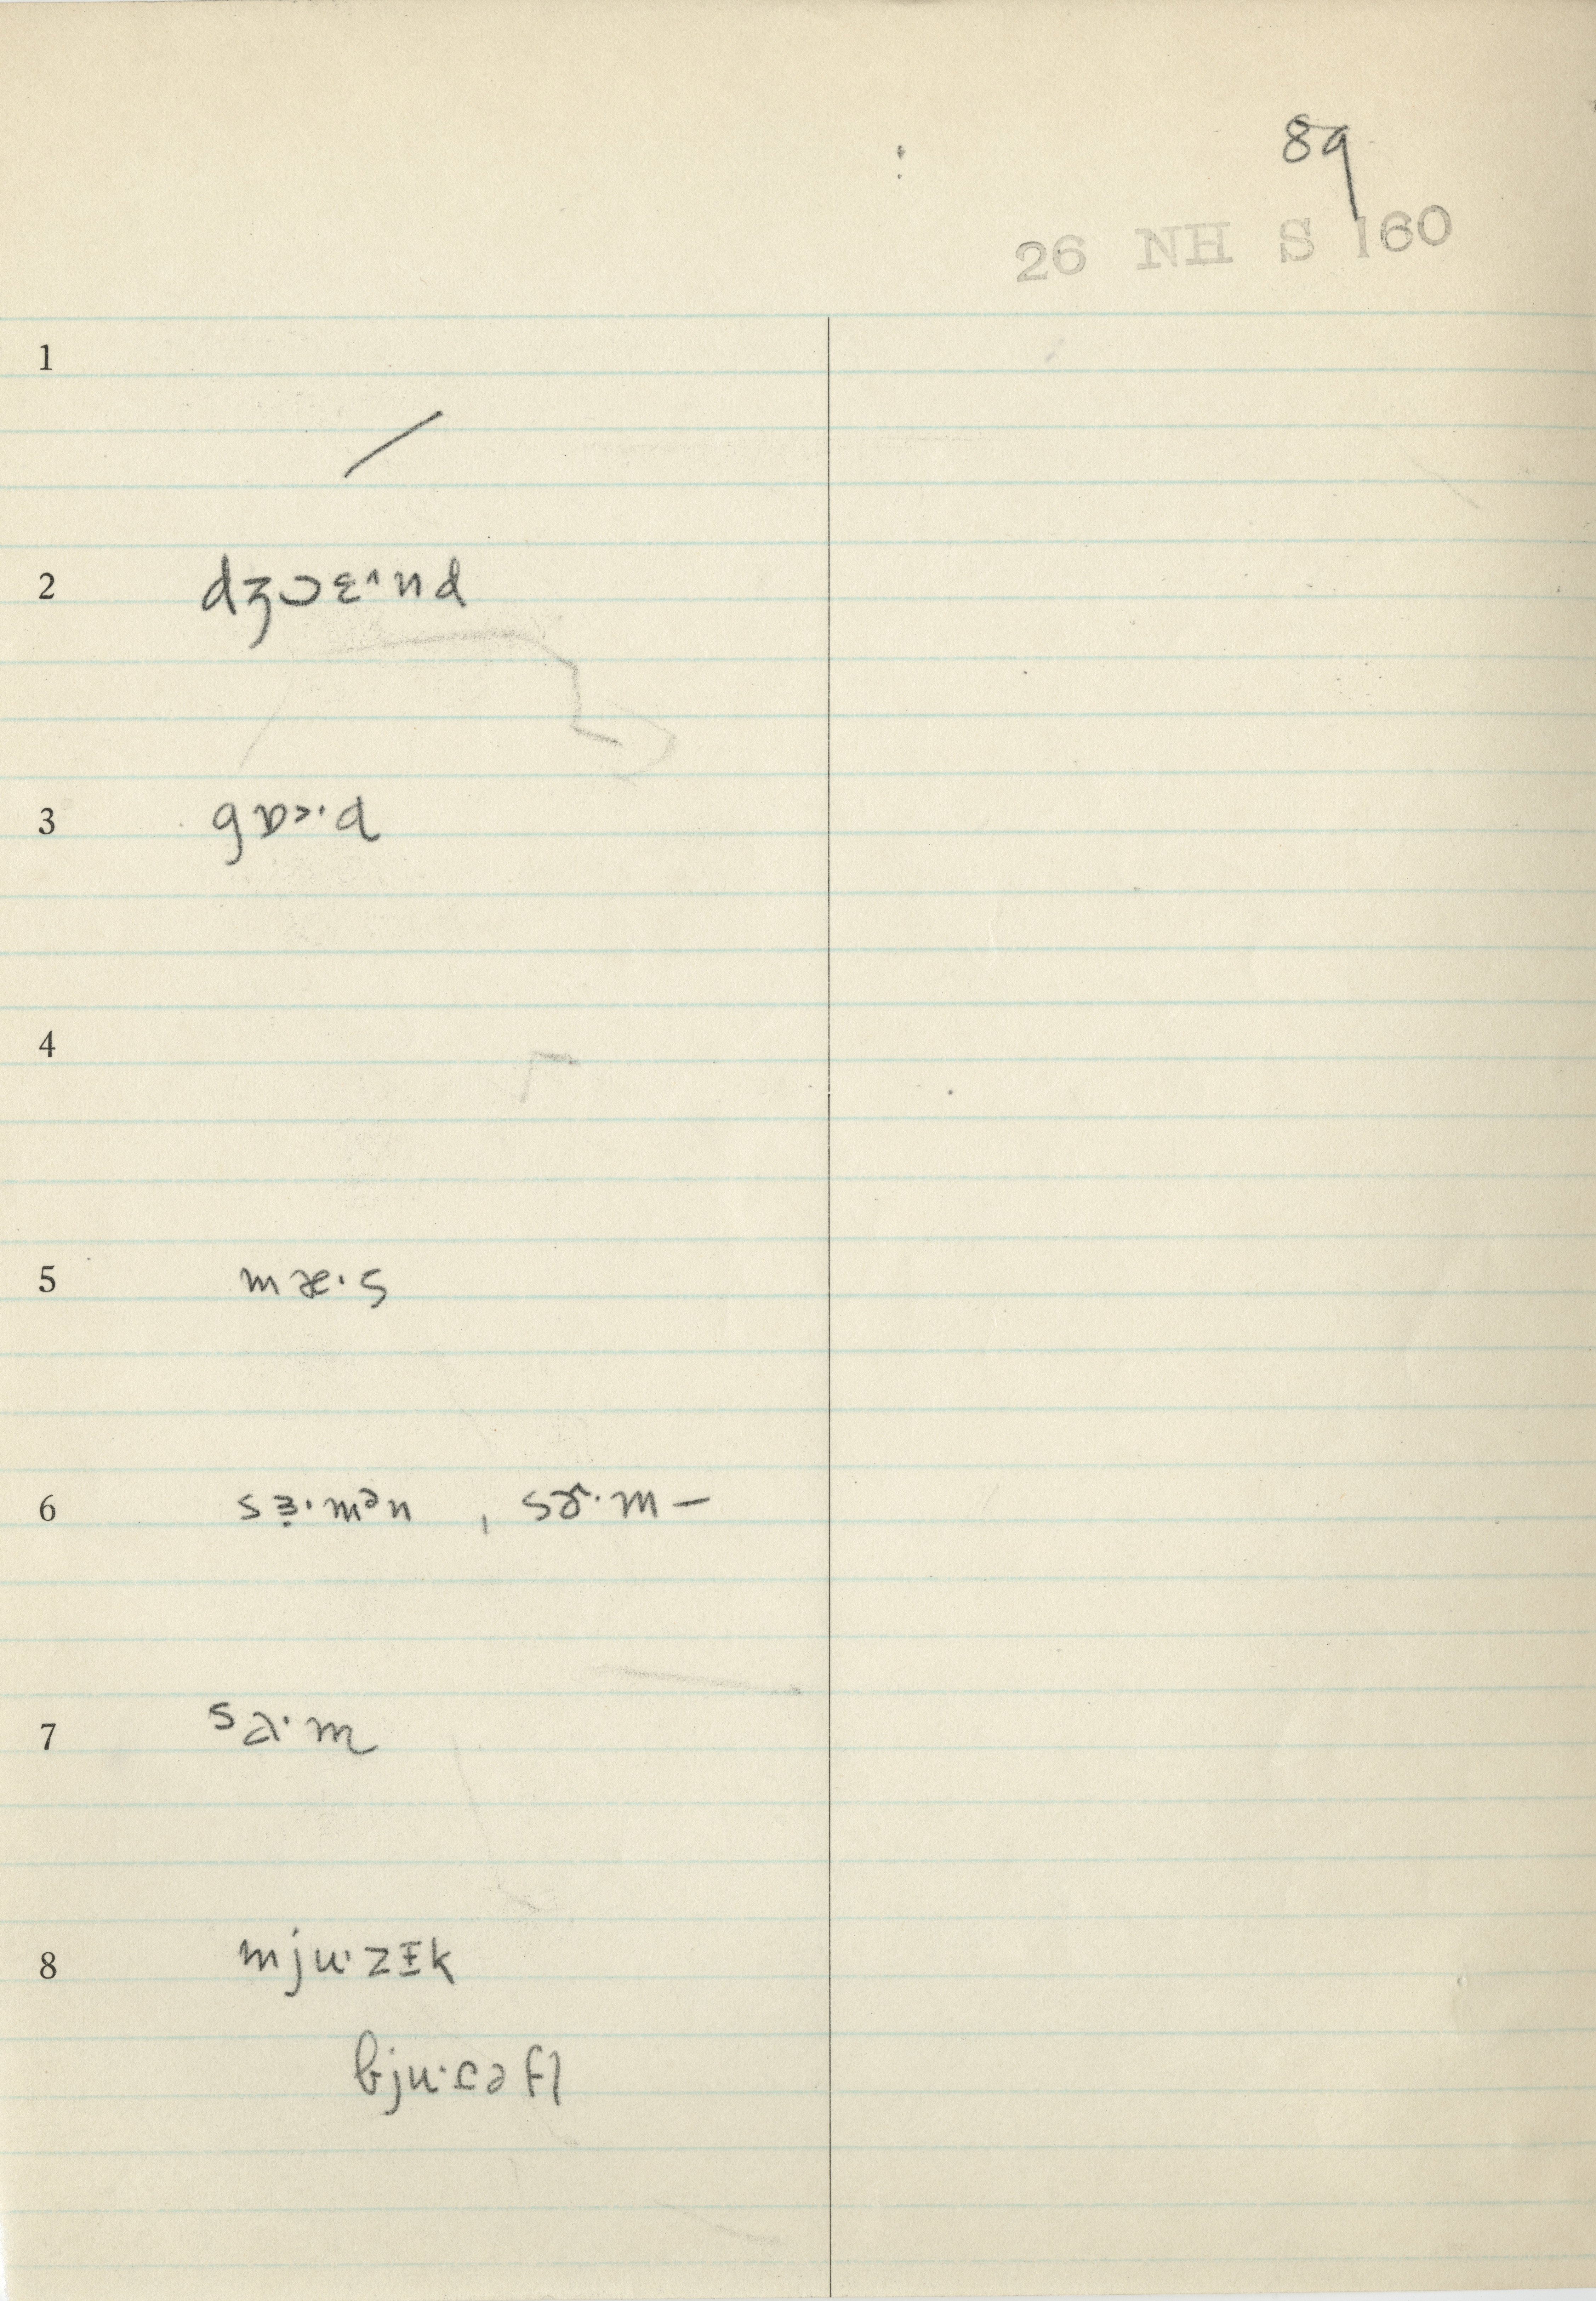 89
26 NH S 160
1
/
2 dʒɔɛ^nd
3 gɒ>·d
4
5 mæ·s
6 sɜ̣·mən , sɚ·m—
7 sa·m
8 mju·zɪk
bju·ɾəfl